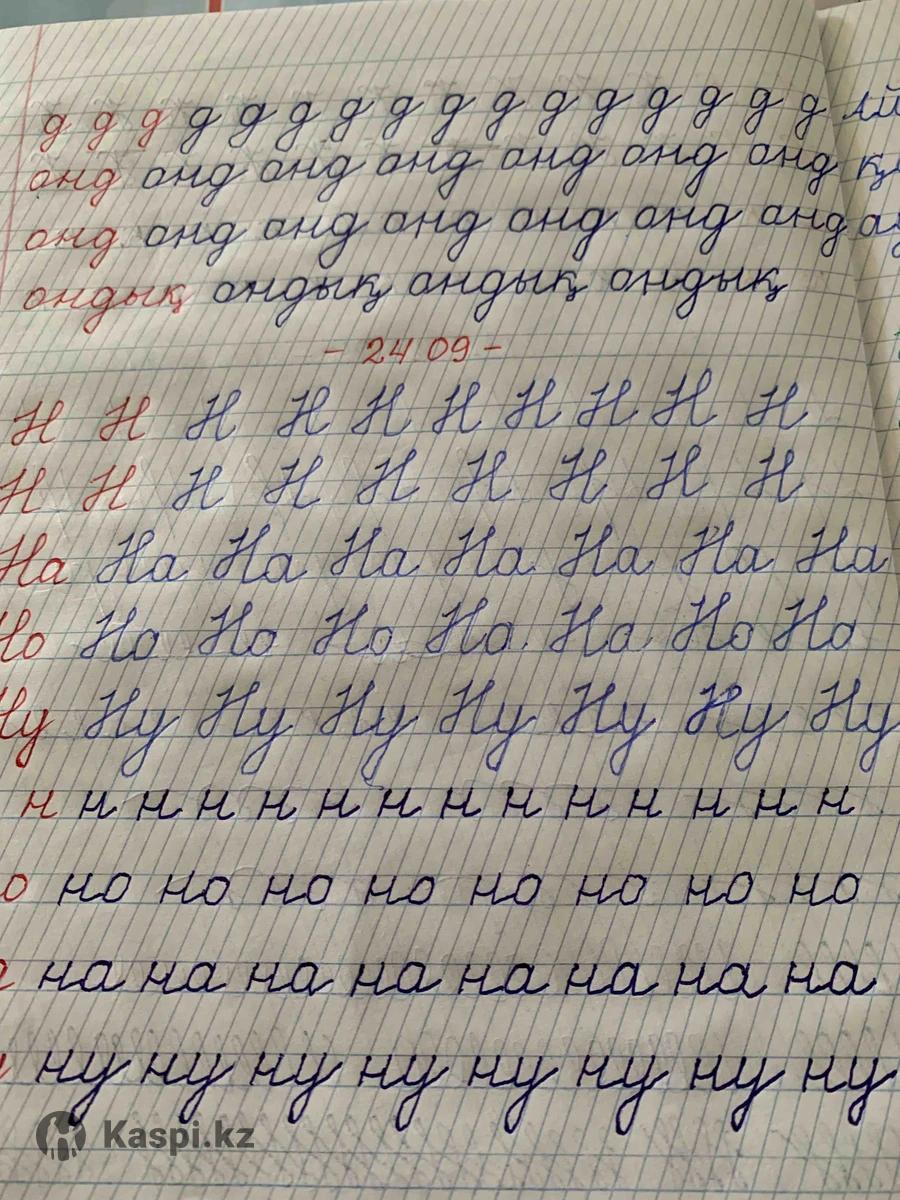 д д д д д д д д д д д д д д д д
онд онд онд онд онд онд онд
онд онд онд онд онд онд онд
ондық ондық ондық ондық
- 24 09 -
Н Н Н Н Н Н Н Н Н Н
Н Н Н Н Н Н Н Н Н
На На На На На На На На
Но Но Но Но Но Но Но Но
Ну Ну Ну Ну Ну Ну Ну Ну
н н н н н н н н н н н н н н
о но но но но но но но но
на на на на на на на на
ну ну ну ну ну ну ну ну
Kaspi.kz